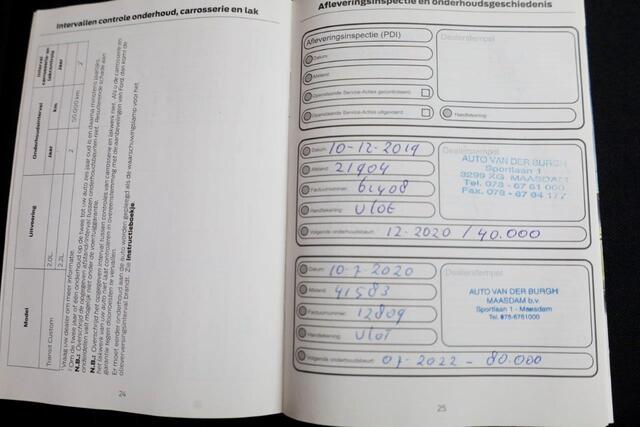 Intervallen controle onderhoud, carrosserie en lak
Model
Uitvoering
Onderhoudsinterval
Interval carrosserie en lakcontrole
Jaar
km
Jaar
Transit Custom
2.0L
2
50.000 km
2
2.2L
Vraag uw dealer om meer informatie.
N.B.:
N.B.:
Zie Instructieboekje
24
Afleveringsinspectie en onderhoudsgeschiedenis
Afleveringsinspectie (PDI)
Dealerstempel
Datum:
Afstand:
Openstaande Service-Acties gecontroleerd
Openstaande Service-Acties uitgevoerd
Handtekening:
Datum: 10-12-2019
Dealerstempel
Afstand: 21904
Factuurnummer: 61408
Handtekening: Vlot
AUTO VAN DER BURGH
Sportlaan 1
3299 XG MAASDAM
Tel. 078 - 67 61 000
Fax. 078 - 67 64 177
Volgende onderhoudsbeurt: 12-2020 / 40.000
Datum: 10-7-2020
Dealerstempel
Afstand: 41583
Factuurnummer: 12809
Handtekening: Vlot
AUTO VAN DER BURGH
MAASDAM b.v.
Sportlaan 1 - Maasdam
Tel. 078-6761000
Volgende onderhoudsbeurt: 07-2022 - 80.000
25